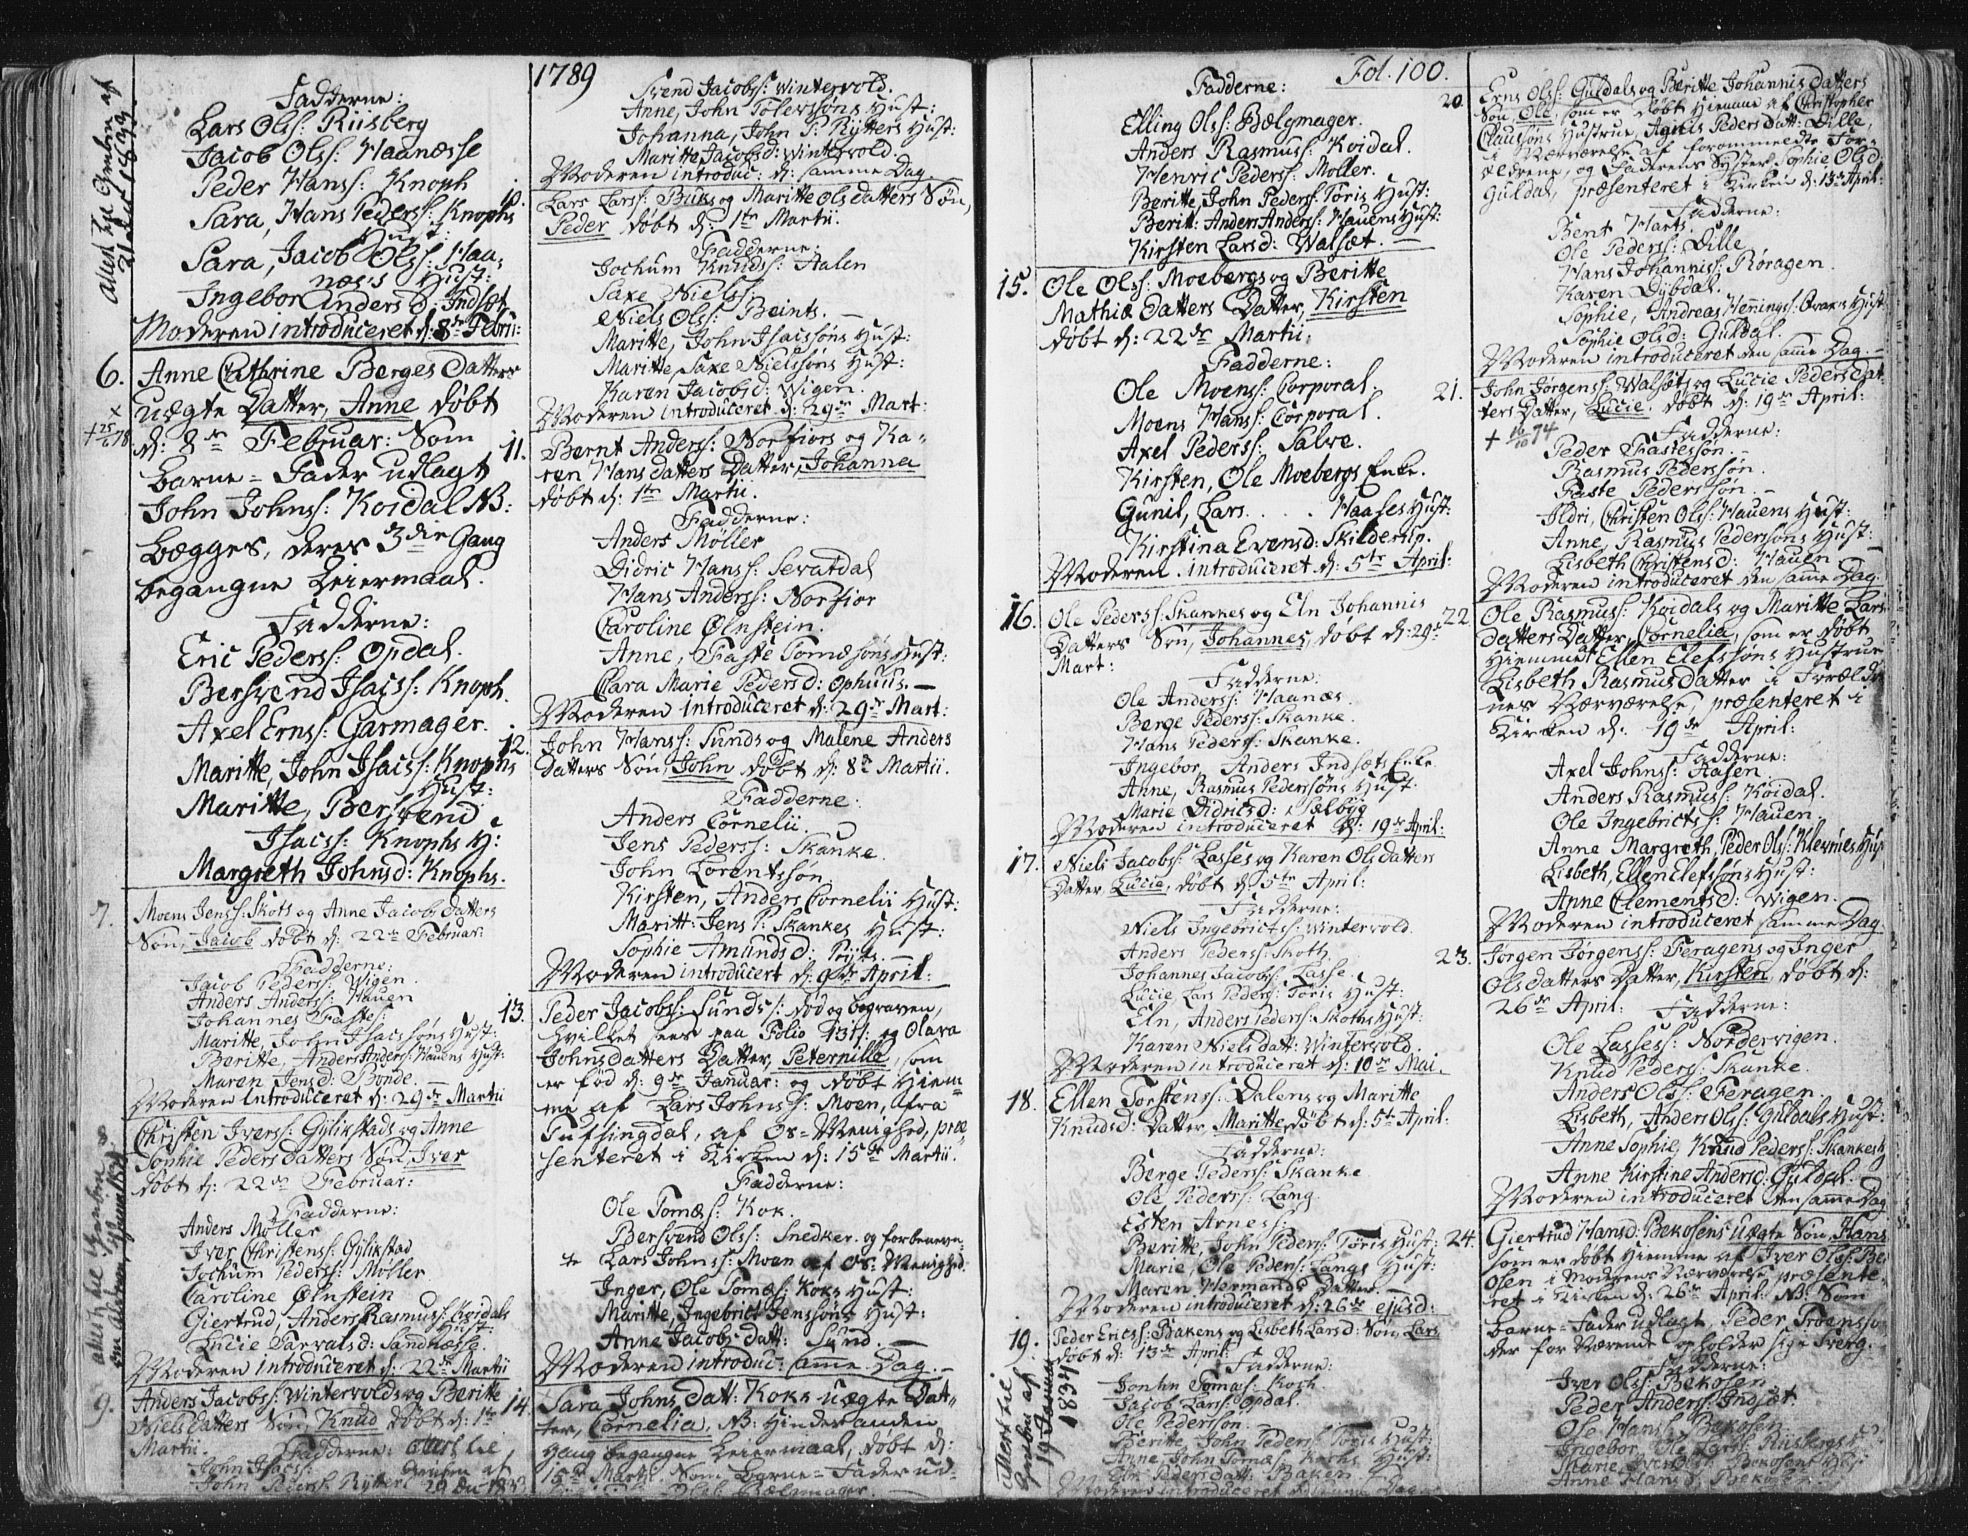 Fadderne:
Lars Olss: Riisberg
Jacob Olss: Haanæsse
Peder Hanss: Knoph
Sara, Hans Pederss: Knophs
Hust:
Sara, Jacob Olss: Haa,
næs's Hust:
Ingebor Anders d: Indset
Moderen introduceret d: 8de Febru:
6. Anne Cathrine Berges Datters
uægte Datter, Anne døbt
d: 8de Februar: Som
Barne-Fader udlagt
John Johnss: Koidal NB:
Bægges, deres 3die Gang
begangne Leiermaal.
Fadderne:
Eric Pederss: Opdal.
Bersvend Isacss: Knoph.
Axel Ernss: Garmager.
Maritte, John Isacss: Knophs
Hust:
Maritte, Bersvend
Isacss: Knophs H:
Margreth Johnsd: Knophs.
7. Moens Jenss: Skots og Anne Jacobs Datters
Søn, Jacob døbt d: 22de Februar:
Fadderne:
Jacob Peders: Wigen.
Anders Anderss: Hauen
Johannes Fastes:
Maritte, John Isacssøns Hust:
Beritte, Anders Anderss: Hauens Hust:
Maren Jensd: Bonde.
Moderen Introduceret d: 29de Martii
Christen Iverss: Gylikstads og Anne
Sophie Peders Datters Søn, Iver
døbt d: 22de Februar:
Fadderne:
Anders Møller
Iver Christenss: Gylikstad
Jochum Pederss: Møller
Caroline Ølnstein
Giertrud, Anders Rasmuss: Koidals
Hust:
Lucie Tarvalsd: Sandnæsse.
Moderen introduceret d: 22de Martii
9. Anders Jacobss: Wintervolds og Beritte
Niels Datters Søn, Knud døbt d: 1te
Martii.
Fadderne:
John Isacss:
John Peders: Rytter
1789
Svend Jacobss: Wintervold.
Anne, John Tolevssøns Hust:
Johanna, John P: Rytters Hust:
Maritte Jacobsd: Wintervold.
Moderen introduc: d: samme Dag.
10. Lars Larss: Buks og Maritte Ols Datters Søn,
Peder døbt d: 1te Martii.
Fadderne:
Jochum Knudss: Aalen
Saxe Nielss:
Niels Olss: Beints.
Maritte, John Isacssøns Hust:
Maritte, Saxe Nielssøns Hust:
Karen Jacobsd: Wigen.
Moderen introduceret d: 29de Mart:
11. Bernt Anderss: Norfiors og Ka-
ren Hans Datters Datter, Johanna
døbt d: 1te Martii.
Fadderne:
Anders Møller
Didric Hanss: Sevatdal
Hans Anderss: Norfior
Caroline Ølnstein.
Anne, Faste Tomæsøns Hust:
Clara Marie Pedersd: Ophuus.
Moderen introduceret d: 29de Mart:
12. John Hanss: Sunds og Malene Anders
Datters Søn, John døbt d: 8de Martii.
Fadderne:
Anders Cornelii.
Jens Pederss: Skanke.
John Lorentssøn.
Kirsten, Anders Cornelii Hust:
Maritt: Jens P: Skankes Hust:
Sophie Amundsd:
Moderen introducert d: 9de April:
13. Peder Jacobss: Sunds /: død og begraven,
hvilket sees paa Folio 131 :/ og Olava
Johns Datters Datter, Peternille, som
er fød d: 9de Januar: og døbt Hiem-
me af Lars Johnss: Moen, fra
Tufsingdal, af Os-Menighed, præ-
senteret i Kirken d: 15de Martii.
Fadderne:
Ole Tomæs: Kok.
Bersvend Olss: Snedker. og forbenævn-
te Lars Johnss: Moen af Os-Menighed.
Inger, Ole Tomæs: Koks Hust:
Maritte, Ingebrict Jenssøns Hust:
Anne Jacobs datt: Sund.
Moderen introduc: same Dag.
14. Sara Johns Datt: Koks uægte Dat-
ter, Cornelia. NB: Hindes anden
Gang begangne Leiermaal, døbt d:
15de Martii. Som Barne-Fader ud-
Fadderne: Fol. 100.
Elling Olss: Bælgmager.
Anders Rasmuss: Koidal.
Henric Pederss: Møller.
Beritte, John Pederss: Toris Hust:
Beritt: Anders Anderss: Hauens Hust:
Kirsten Larsd: Walsæt.
15. Ole Olss: Moebergs og Beritte
Mathiæ Datters Datter, Kirsten
døbt d: 22de Martii.
Fadderne:
Ole Moenss: Corporal.
Moens Hanss: Corporal.
Axel Pederss: Salve.
Kirsten, Ole Moebergs Enke.
Gunil, Lars . . . . Haases Hust:
Kirstina Evensd: Skilderup.
Moderen introduceret d: 5te April:
16. Ole Pederss: Skankes og Eln Johannis
Datters Søn, Johannes, døbt d: 29de
Mart:
Fadderne:
Ole Anderss: Haanæs.
Berge Pederss: Skanke.
Hans Pederss: Skanke.
Ingebor, Anders Indsets Enke
Anne, Rasmus Pederssøns Hust:
Marie Didricsd: Sælbog
Moderen introduceret d: 19de April:
17. Niels Jacobss: Lasses og Karen Ols Datters
Datter, Lucia, døbt d: 5te April:
Fadderne:
Niels Ingebrictss: Wintervold.
Anders Pederss: Skott
Johannes Jacobs: Lasse.
Lucie, Lars Peders: Toris Hust:
Eln, Anders Peders: Skotts Hust:
Karen Niels datt: Wintervold.
Moderen introduceret d: 10de Mai.
18. Ellen Torstens: Dalens og Maritte
Knudsd: Datter, Maritte døbt d: 5te April:
Fadderne:
Berge Pederss: Skanke
Ole Pederss: Lang.
Esten Arness:
Beritte, John Peders: Toris Hust:
Marie, Ole Peders: Langs Hust:
Maren Hermands Datter.
Moderen introduceret d: 26de ejusd:
19. Peder Ericss: Bakens og Lisbeth Larsd: Søn, Lars
døbt d: 13de April:
Fadderne:
Jonhn Tomæs: Kock.
Jacob Larss: Opdal.
Ole Pederssøn.
Beritte John Pederss: Toris Hust:
Anne, John Tomæs: Kocks Hust:
Peders datt: Baken
20. Erns Olss: Guldals og Beritte Johannis Datters
Søn, Ole, som er døbt Hiemme af Christopher
Claussøns Hustrue, Agnis Peders Datt: Dille,
i Nærværelse af forommeldte For-
ældrene, og Faderens Syster Sophie Olsd:
Guldal, præsenteret i Kirken d: 13de April:
Fadderne:
Bent Harts.
Ole Pederss: Dille
Hans Johanniss: Røragen.
Karen Dybdal.
Sophie, Andreas Hennings: Hust:
Sophie Olsd: Guldal.
Moderen introduceret den samme Dag.
21. John Jørgens: Walsøts og Lucie Peders Dat-
ters Datter, Lucie. døbt d: 19de April:
Fadderne:
Peder Fastessøn.
Rasmus Pederssøn.
Faste Pederssøn.
Ildri, Christen Olss: Hauens Hust:
Anne, Rasmus Pederssøns Hust:
Lisbeth Christensd: Hauen
Moderen introduceret den samme Dag.
22. Ole Rasmuss: Koidals og Maritte Lars
Datters Datter, Cornelia, som er døbt
Hiemme af Ellen Elefssøns Hustrue
Lisbeth Rasmus Datter i Forældre
nes Nærværelse, præsenteret i
Kirken d: 19de April:
Fadderne:
Axel Johnss: Aasen.
Anders Rasmuss: Koidal.
Ole Ingebrictss: Hauen.
Anne Margreth, Peder Olss: Klevnes Hus
Lisbeth, Ellen Elefssøns Hust:
Anne Clementsd: Wigen.
Moderen introduceret samme Dag.
23. Jørgen Jørgenss: Feragens og Inger
Olsdatters Datter, Kirsten døbt d:
26de April:
Fadderne:
Ole Lasses: Nordervigen.
Knud Pederss: Skanke.
Anders Olss: Feragen.
Lisbeth, Anders Olss: Guldals Hust:
Anne Sophie, Knud Pederss: Skankes H
Anne Kirstine Andersd: Guldal.
Moderen introduceret den samme Dag
24. Giertrud Hansd: Bekosens uægte Søn, Hans
som er døbt Hiemme af Iver Olss: Be
osen i Moderens Nærværelse, præsente-
ret i Kirken d: 26de April: NB: Som
Barne-Fader udlagt, Peder Troensso
der for Nærende opholder sig i Sverg.
Fadderne:
Iver Olss: Bekosen
Peder Anderss: Indsæt.
Ole Hanss: Bekosen
Ingebor, Ole Larss: Riisbergs
Marie, Iver Olss: Bekosens Hus
Anne Hansd: Bekosen